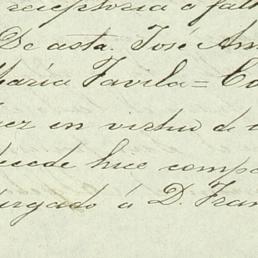 receptoria a falt
De asta. José Am
María Favila = Co
ez en virtud de
cede hice compa
urgado á D. Fran